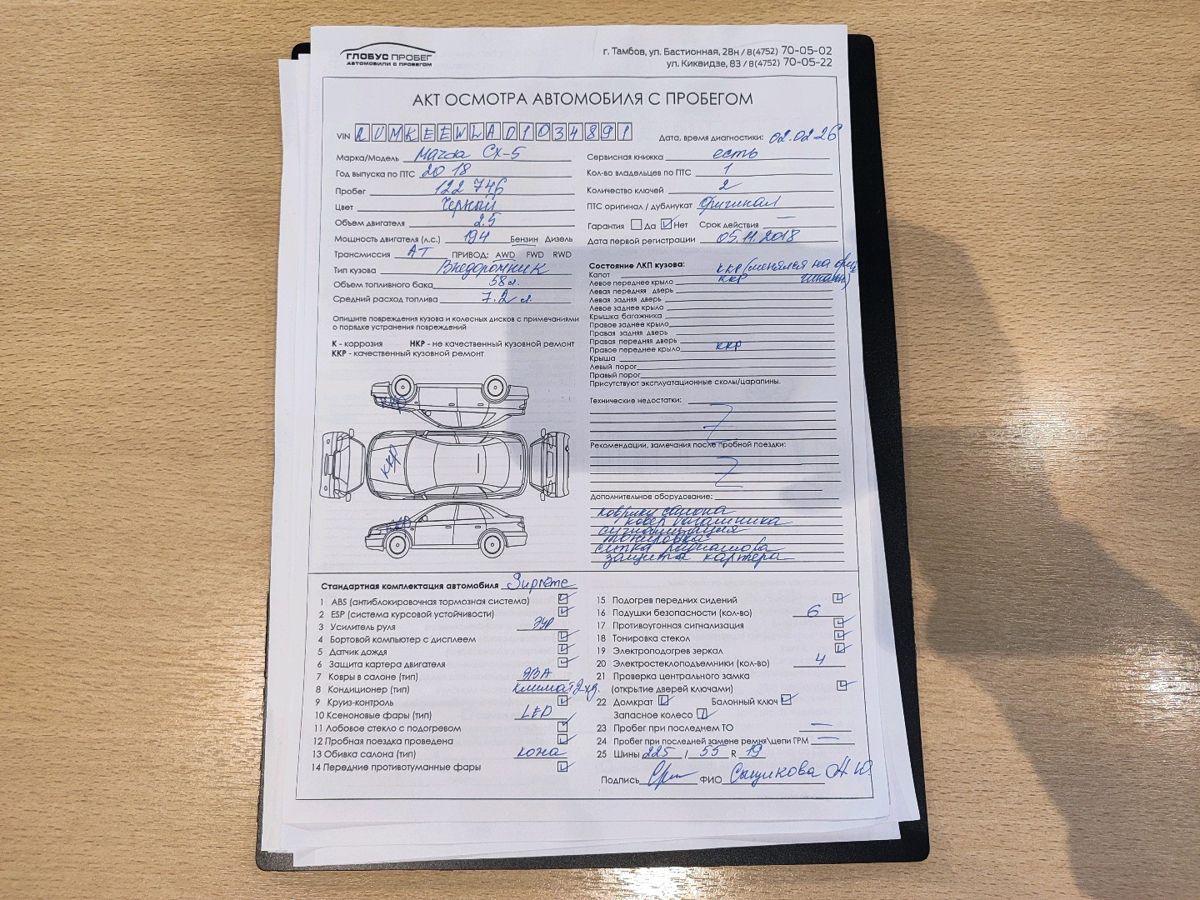 ГЛОБУС ПРОБЕГ
АВТОМОБИЛИ С ПРОБЕГОМ
г. Тамбов, ул. Бастионная, 28н / 8(4752) 70-05-02
ул. Киквидзе, 83 / 8(4752) 70-05-22
АКТ ОСМОТРА АВТОМОБИЛЯ С ПРОБЕГОМ
VIN RUMKEEWLA01034891
Дата, время диагностики: 02.02.26
Марка/Модель Mazda CX-5
Год выпуска по ПТС 2018
Пробег 122 746
Цвет Черный
Объем двигателя 2.5
Мощность двигателя (л.с.) 194 Бензин Дизель
Трансмиссия АТ ПРИВОД: AWD FWD RWD
Тип кузова Внедорожник
Объем топливного бака 58л.
Средний расход топлива 7.2 л.
Сервисная книжка есть
Кол-во владельцев по ПТС 1
Количество ключей 2
ПТС оригинал / дубликат Оригинал
Гарантия Да Нет Срок действия —
Дата первой регистрации 05.11.2018
Опишите повреждения кузова и колесных дисков с примечаниями
о порядке устранения повреждений
К - коррозия НКР - не качественный кузовной ремонт
ККР - качественный кузовной ремонт
ККР
ККР
ККР
Состояние ЛКП кузова:
Капот ККР (менялся на ориг
Левое переднее крыло ККР
Левая передняя дверь
Левая задняя дверь
Левое заднее крыло
Крышка багажника
Правое заднее крыло
Правая задняя дверь
Правая передняя дверь
Правое переднее крыло ККР
Крыша
Левый порог
Правый порог
Присутствуют эксплуатационные сколы/царапины.
Технические недостатки:
Рекомендации, замечания после пробной поездки:
Дополнительное оборудование:
коврики салона
ковер багажника
сигнализация
тонировка
сетка радиатора
защита картера
Стандартная комплектация автомобиля Supreme
1 ABS (антиблокировочная тормозная система)
2 ESP (система курсовой устойчивости)
3 Усилитель руля ЭУР
4 Бортовой компьютер с дисплеем
5 Датчик дождя
6 Защита картера двигателя
7 Ковры в салоне (тип) ЭВА
8 Кондиционер (тип) климат 2х з.
9 Круиз-контроль
10 Ксеноновые фары (тип) LED
11 Лобовое стекло с подогревом
12 Пробная поездка проведена
13 Обивка салона (тип) кожа
14 Передние противотуманные фары
15 Подогрев передних сидений
16 Подушки безопасности (кол-во) 6
17 Противоугонная сигнализация
18 Тонировка стекол
19 Электроподогрев зеркал
20 Электростеклоподъемники (кол-во) 4
21 Проверка центрального замка
(открытие дверей ключами)
22 Домкрат Балонный ключ
Запасное колесо
23 Пробег при последнем ТО —
24 Пробег при последней замене ремня\цепи ГРМ —
25 Шины 225 / 55 R 19
Подпись ФИО Сыщикова А Ю